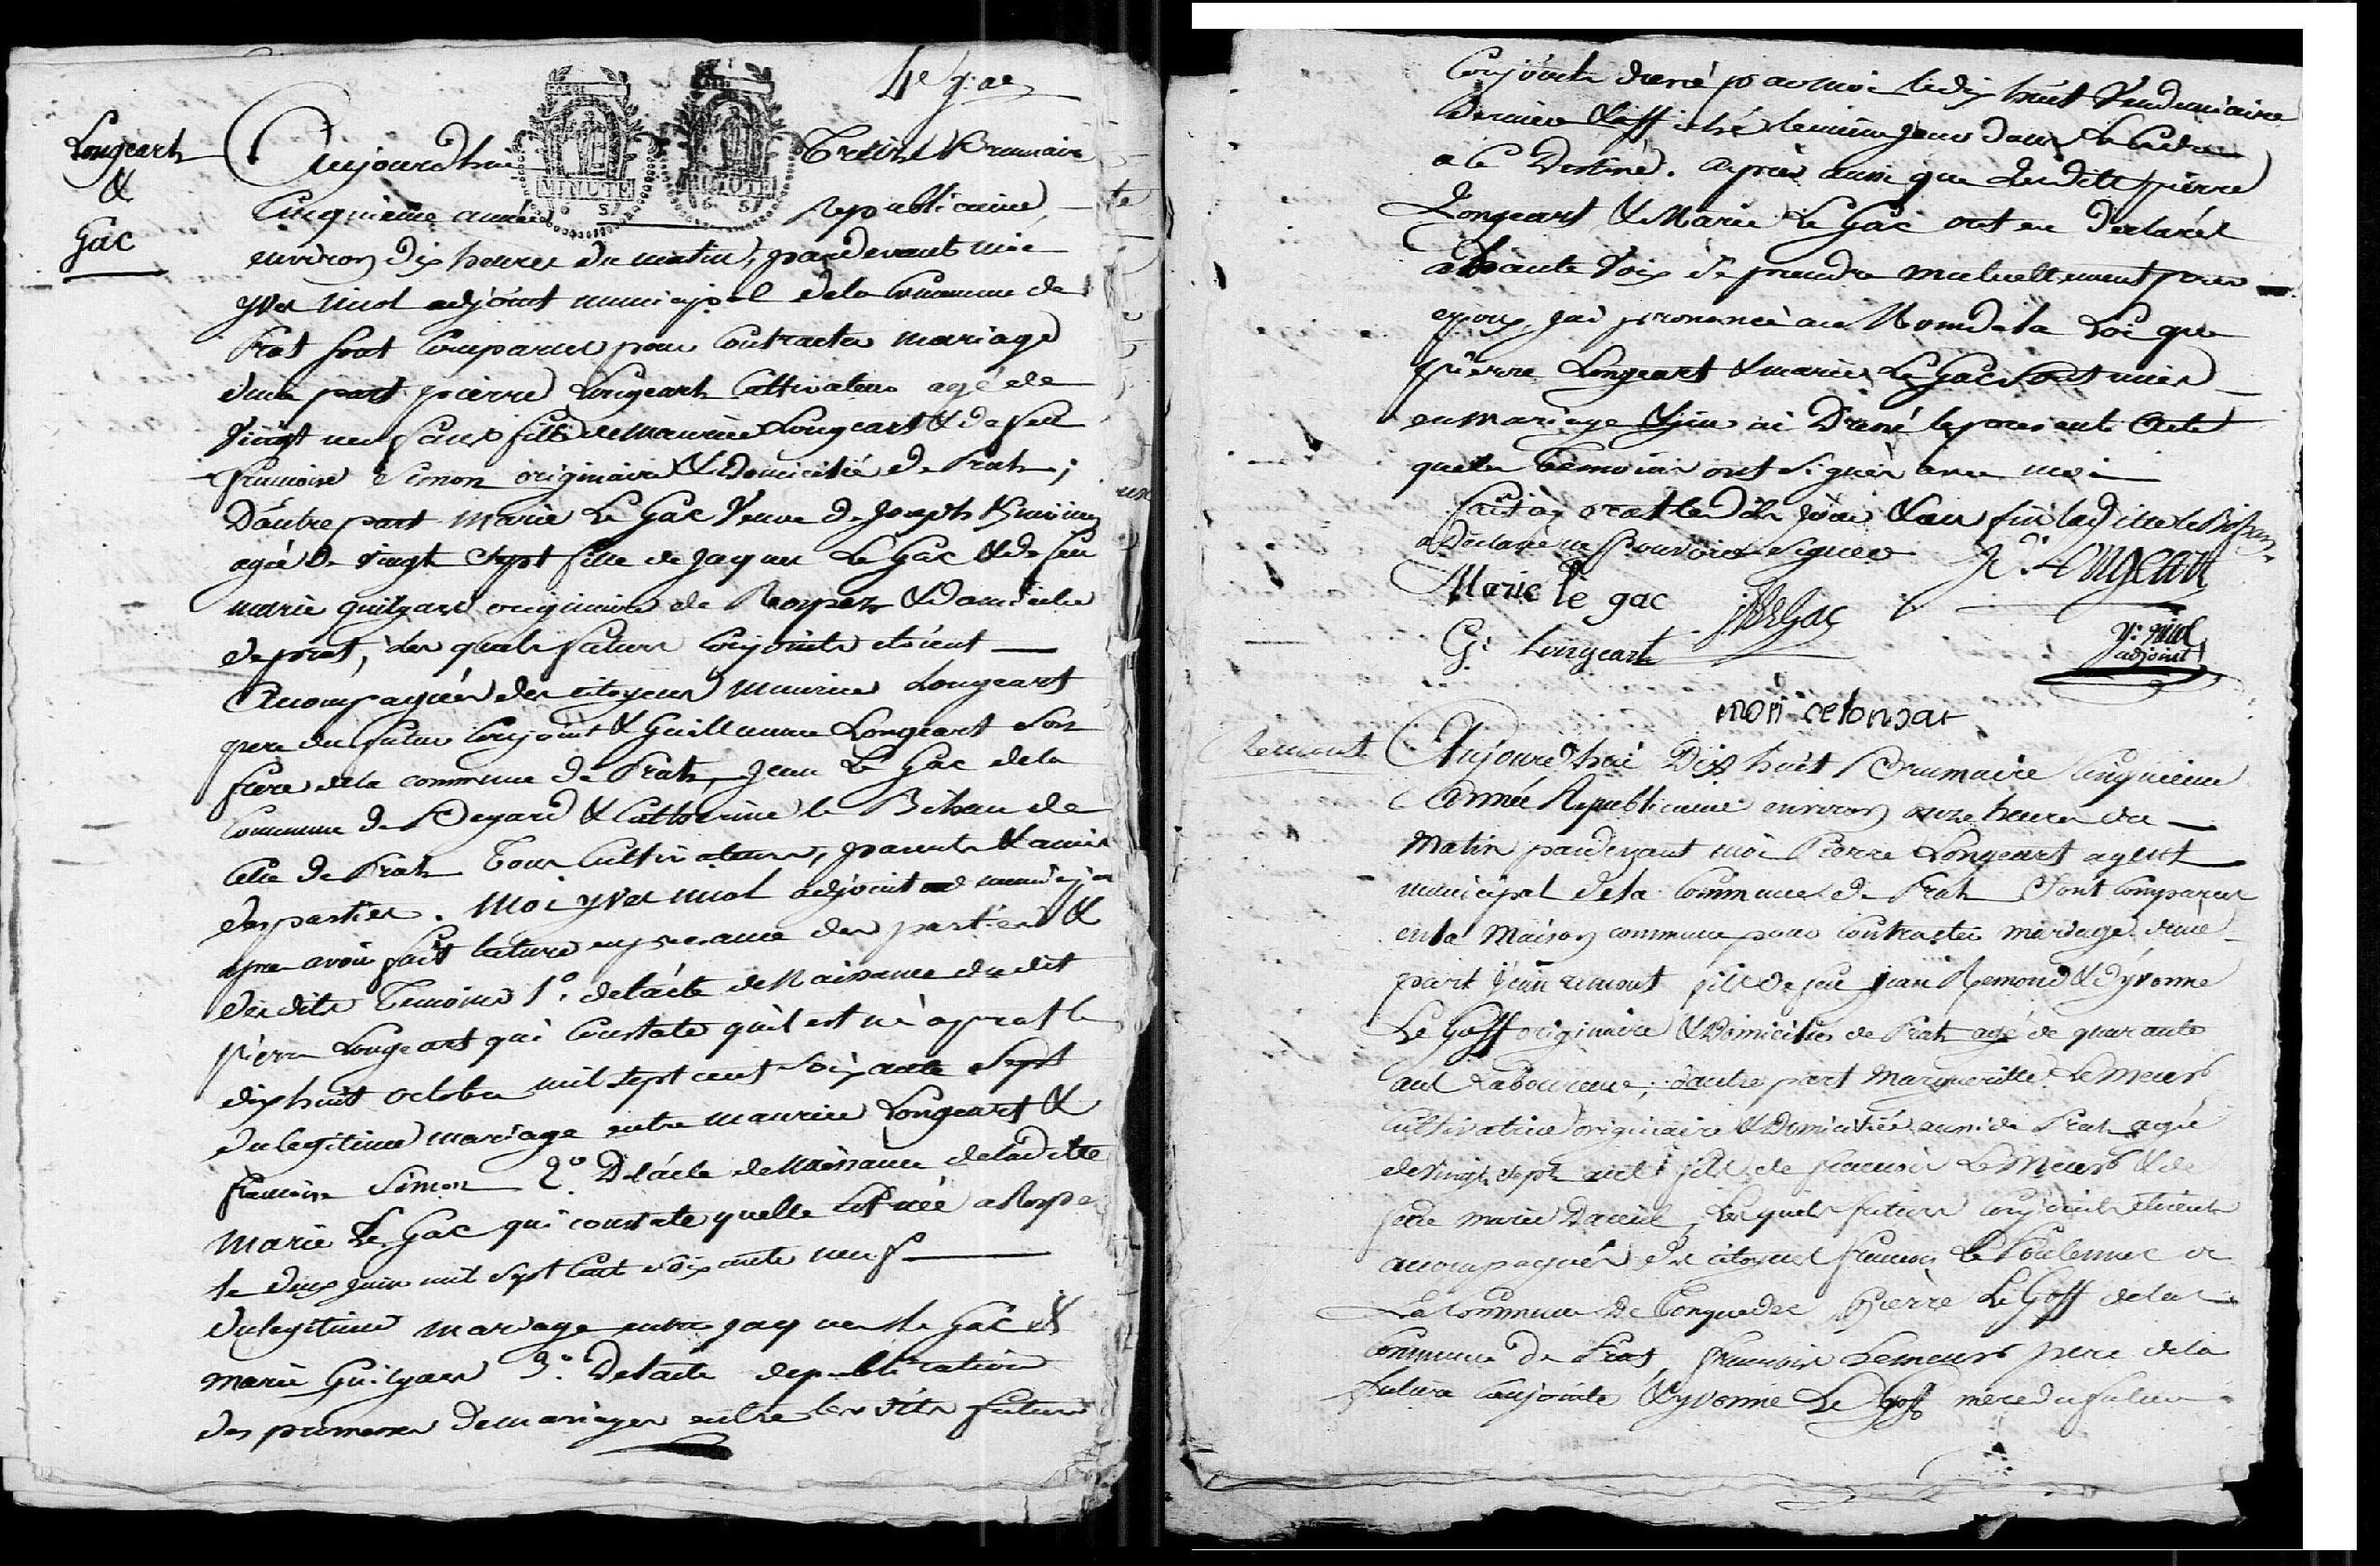 4e g.ae
Longeart
&
Gac
Aujourdhui Treize Brumaire
MINUTE MINUTE
Cinquieme année republicaine,
environ dix heures du matin, pardevant moi
yves nicol adjoint municipal de la Commune de
Prat sont Comparus pour Contracter mariage
d'une part pierre Longeart Cultivateur agé de
Vingt neuf ans fils de Maurice Longeart & de feue
francoise Simon originaire & Domicilié de Prat ;
D'autre part Marie Le Gac Veuve de Joseph
agée de vingt Sept fille de Jacques Le Gac & de feu
marie guilgars originaire de Rospez & Domiciliée
de prat, les quels futurs Conjoints etoient
Accompagnés des citoyens maurice Longeart
pere du futur Conjoint & Guillaume Longeart Son
frere de la commune de Prat, Jean Le Gac de la
Commune de Begard & Catherine le Bihan de
celle de Prat Tous Cultivateurs, parents & amis
des parties. Moi yves nicol adjoint municipal
apres avoir fait lecture en presence des parties &
des dits Temoins 1.° de l'acte de Naissance du dit
pierre Longeart qui Constate qu'il est né a prat le
dix huit octobre mil sept cent soixante Sept
du legitime mariage entre maurice Longeart &
francoise Simon 2.° De l'acte de Naissance de laditte
Marie Le Gac qui constate quelle est née a Rospez
le deux juin mil sept Cent soixante neuf
du legitime mariage entre jacques le Gac &
marie Guilgars 3.° De l'acte de publication
des promesses de mariages entre les dits futurs
Conjoints dressé par moi le dix huit Vendemiaire
Dernier & affiché le meme jour dans le Cadre
a ce Destiné. Après aussi que Lesdits pierre
Longeart & Marie Le Gac ont eu Declaré
a haute Voix se prendre mutuellement pour
epoux, j'ai prononcé au Nom de la Loi que
pierre Longeart & marie Le Gac sont unis
en mariage & j'en ai Dressé le present Acte
que les Temoins ont signés avec moi
fait a prat les dits jour & an fin laditte le Bihan
a Declaré ne Pouvoir Signer
Marie le gac
Gi Longeart
y: nicol
adjoint
Remont
Aujourd'hui Dix huit Brumaire Cinquieme
Année Republicaine environ onze heures du
Matin pardevant moi Pierre Longeart agent
municipal de la Commune de Prat Sont Comparus
en la Maison commune pour Contracter mariage d'une
part jean remont fils de feu jean Remond & d'yvonne
Le Goff originaire & Domicilié de Prat agé de quarante
ans Laboureur, d'autre part Marguerite Le Meur
Cultivatrice originaire & Domiciliée aussi de Prat agée
de Vingt sept ans fille de francois Le Meur & de
feue marie , les quels futurs Conjoints etoient
accompagnés des citoyens francois Le de
La Commune De Tonquedec Pierre Le Goff de la
Commune de Prat, francois Lemeur pere de la
future Conjointe & yvonne Le Goff mere du futur